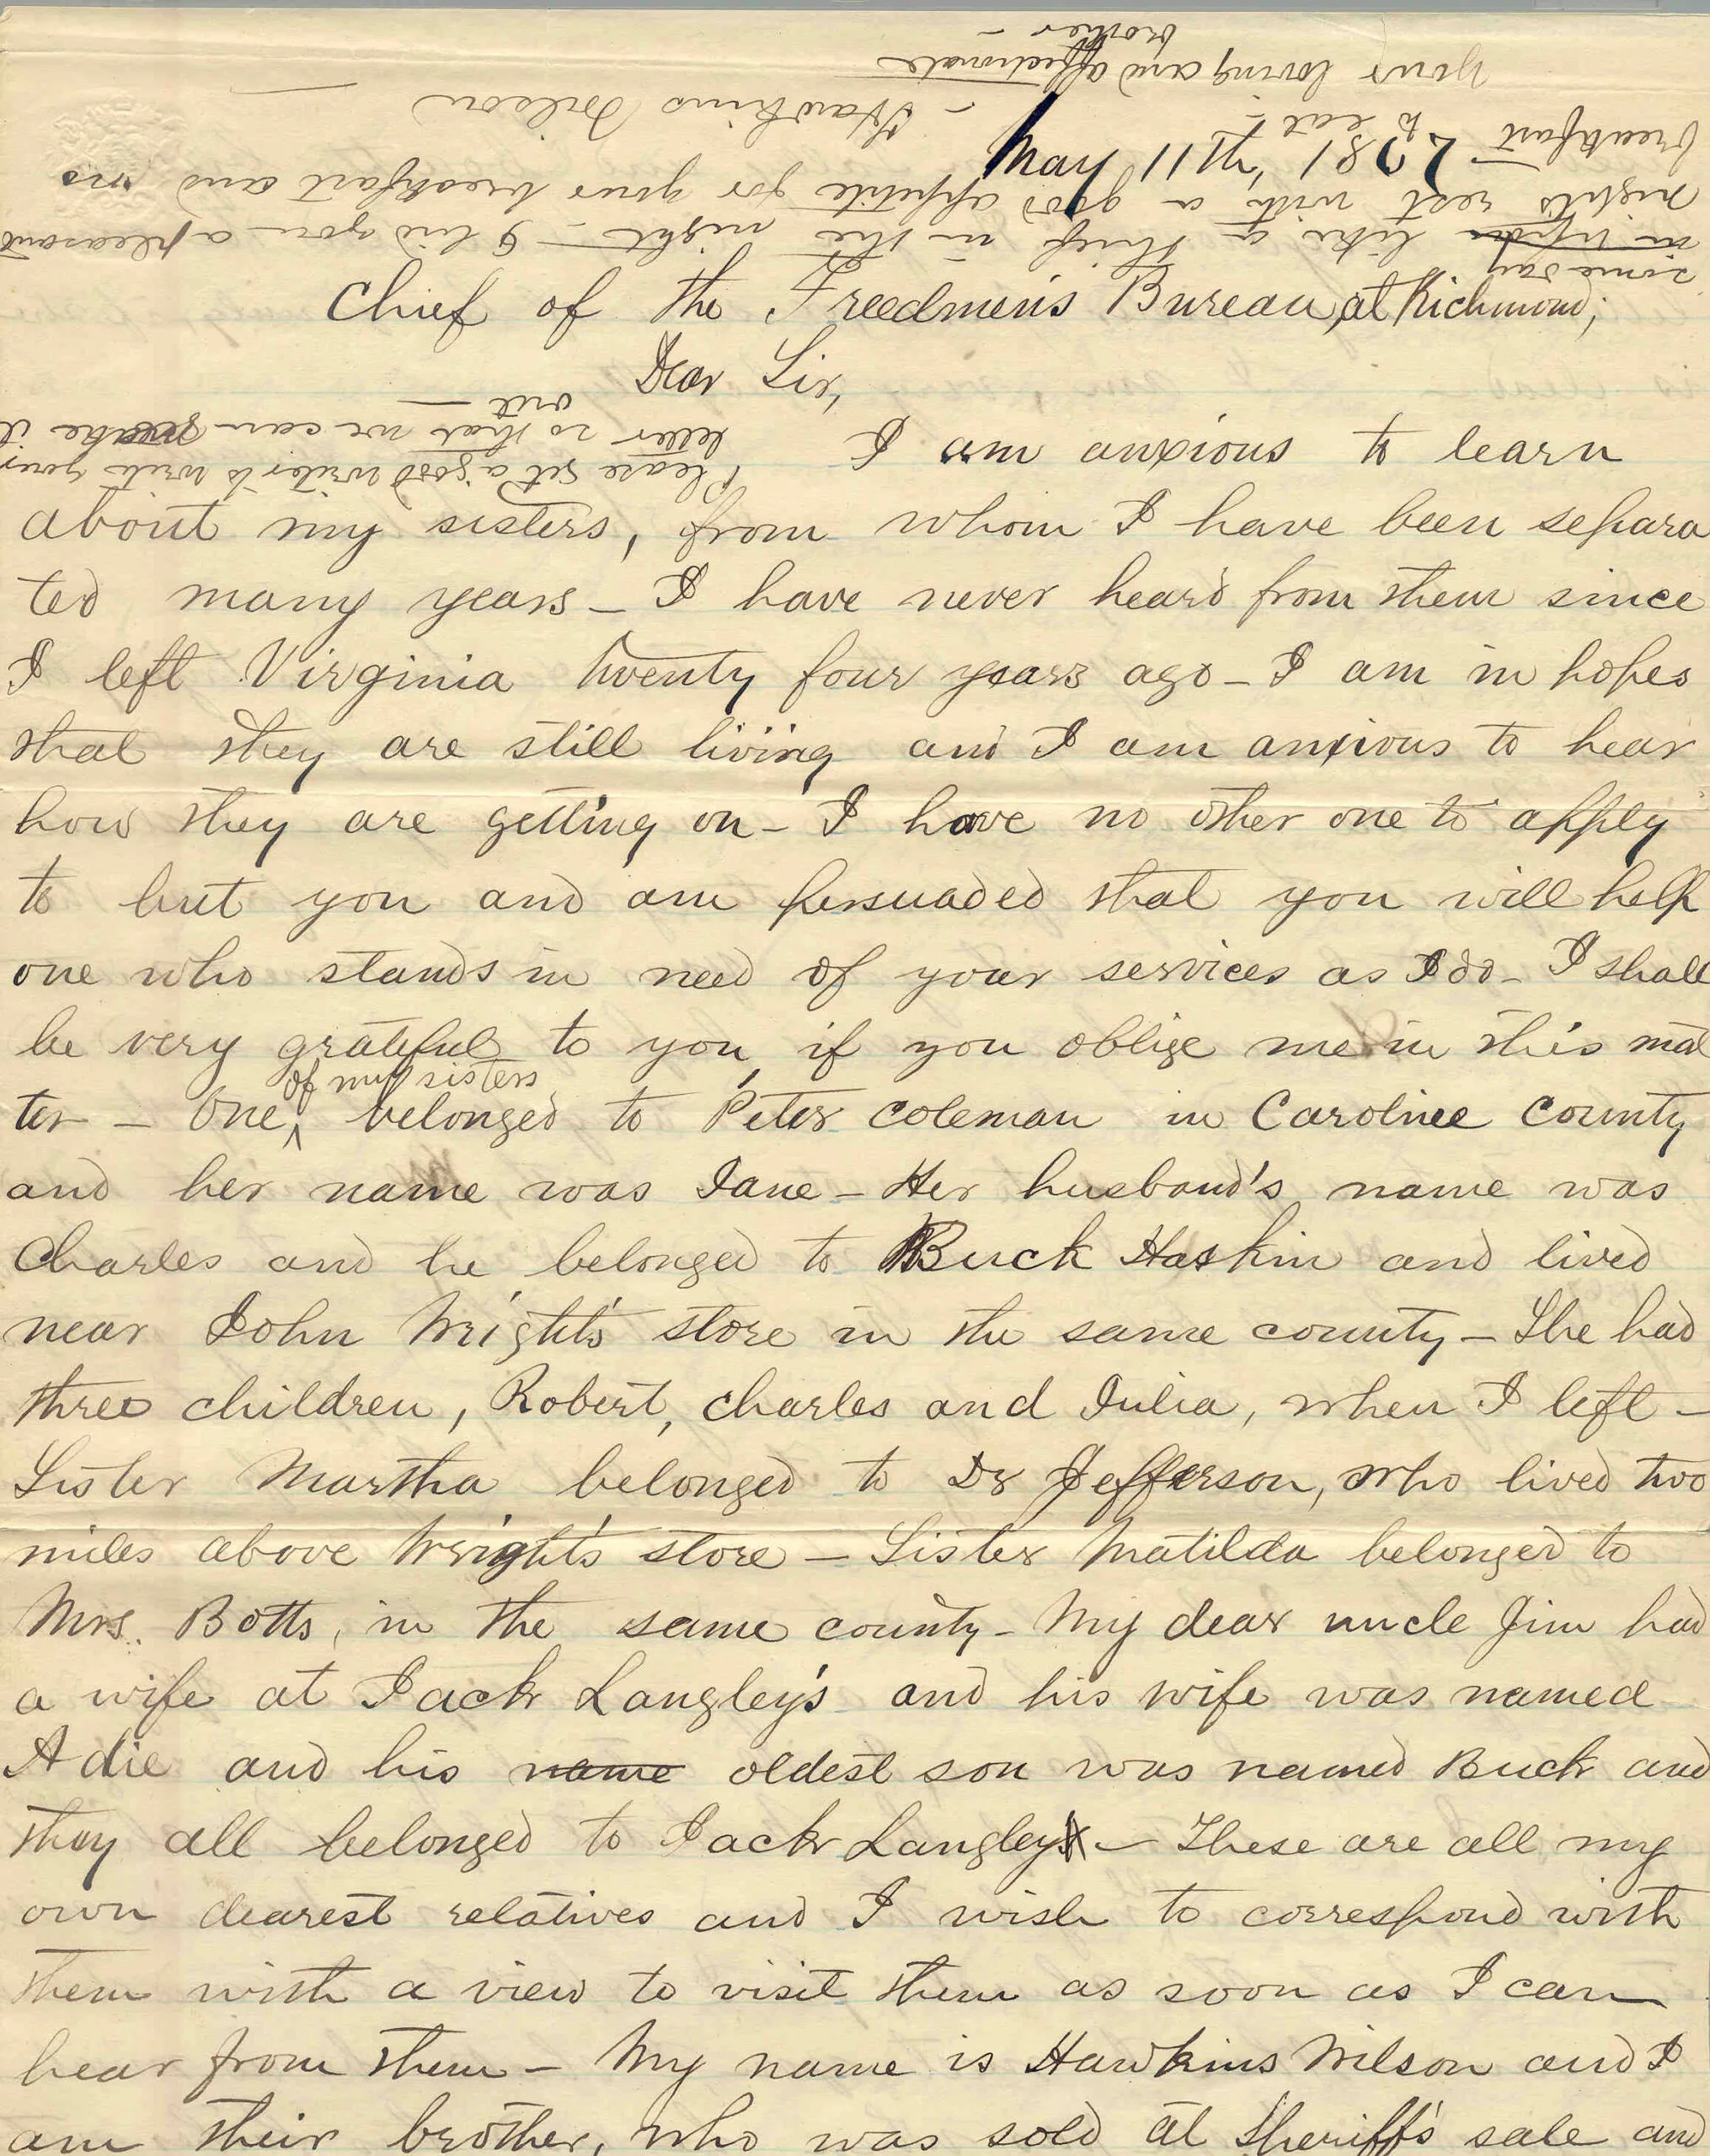 May 11th, 1867
Chief of the Freedmen's Bureau, at Richmond;
Dear Sir,
I am anxious to learn
about my sisters, from whom I have been separa
ted many years – I have never heard from them since
I left Virginia twenty four years ago – I am in hopes
that they are still living and I am anxious to hear
how they are getting on – I have no other one to apply
to but you and am persuaded that you will help
one who stands in need of your services as I do – I shall
be very grateful to you, if you oblige me in this mat
of my sisters
ter – One belonged to Peter Coleman in Caroline County
and her name was Jane – Her husband's name was
Charles and he belonged to Buck Haskin and lived
near John Wright's store in the same county – She had
three children, Robert, Charles and Julia, when I left –
Sister Martha belonged to Dr Jefferson, who lived two
miles above Wright's store – Sister Matilda belonged to
Mrs. Botts, in the same county – My dear uncle Jim had
a wife at Jack Langley's and his wife was named
Adie and his name oldest son was named Buck and
they all belonged to Jack Langley – These are all my
own dearest relatives and I wish to correspond with
them with a view to visit them as soon as I can
hear from them – My name is Hawkins Wilson and I
am their brother, who was sold at Sheriff's sale and
Please get a good writer to write your
letter so that we can make it
out —
some day
like a thief in the night – I bid you a pleasant
night's rest with a good appetite for your breakfast and no
breakfast to eat –
– Hawkins Wilson –
Your loving and affectionate
brother –